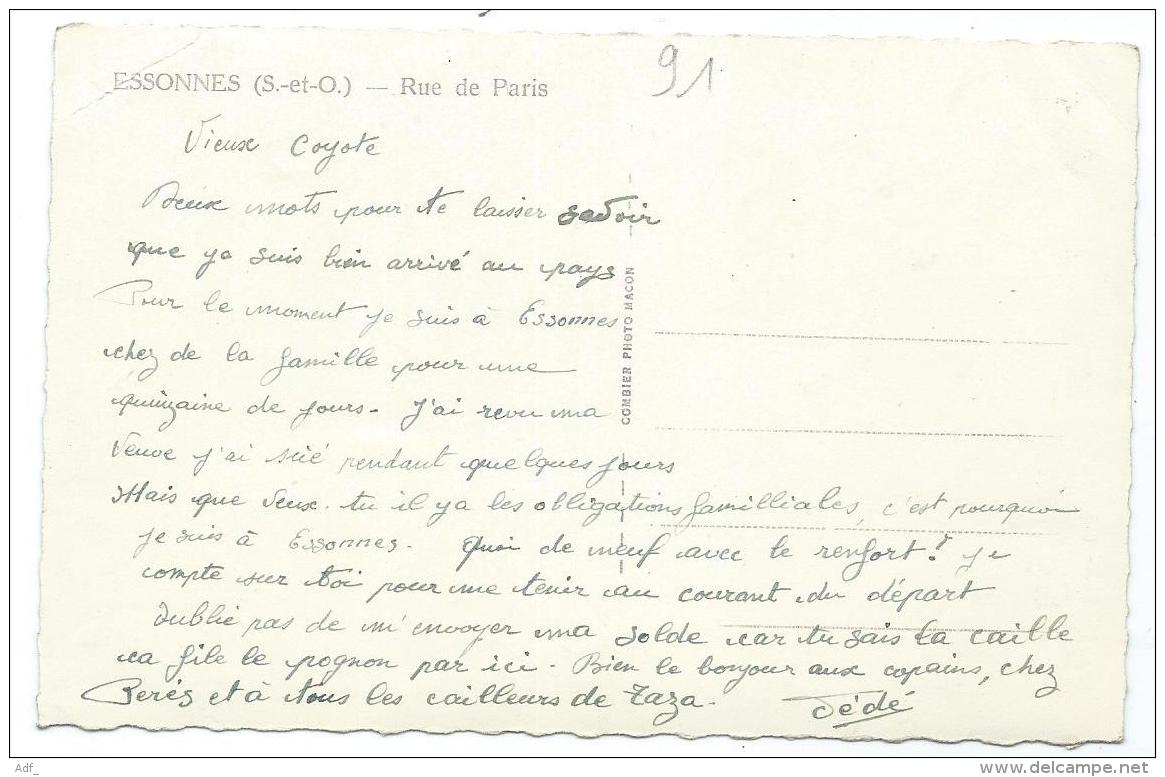 91
ESSONNES (S.-et-O.) — Rue de Paris
Vieux Coyote
Deux mots pour te laisser savoir
que je suis bien arrivé au pays
Pour le moment je suis à Essonnes
chez de la famille pour une
quinzaine de jours. J'ai revu ma
Veuve j'ai sué pendant quelques jours
Mais que veux-tu il y a les obligations familliales, c'est pourquoi
je suis à Essonnes. Quoi de neuf avec le renfort? je
compte sur toi pour me tenir au courant du départ
Oublie pas de m'envoyer ma solde car tu sais la caille
ca file le pognon par ici. Bien le bonjour aux copains, chez
Perés et à tous les cailleurs de Zaza.
Dédé
COMBIER PHOTO MACON
Adf_
delcampe.net